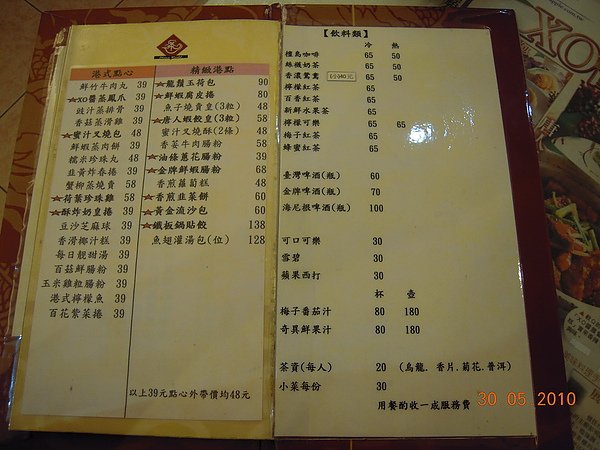 港式點心
鮮竹牛肉丸 39
★xo醬蒸鳳爪 39
豉汁蒸排骨 39
香菇蒸滑雞 39
★蜜汁叉燒包 48
鮮蝦蒸肉餅 39
糯米珍珠丸 48
韭黃炸春捲 39
蟹柳蒸燒賣 58
★荷葉珍珠雞 58
★酥炸奶皇捲 39
豆沙芝麻球 39
香滑椰汁糕 39
每日靚甜湯 39
百菇鮮腸粉 39
玉米雞粒腸粉 39
港式檸檬魚 39
百花紫菜捲 39
以上39元點心外帶價均48元
精緻港點
★龍鬚玉荷包 90
★鮮蝦腐皮捲 80
魚子燒賣皇(3粒) 48
★唐人蝦餃皇(3粒) 68
蜜汁叉燒酥(2條) 48
香荽牛肉腸粉 58
★油條蔥花腸粉 58
★金牌鮮蝦腸粉 68
香煎蘿蔔糕 48
★香煎韭菜餅 60
★黃金流沙包 60
★鐵板鍋貼餃 138
魚翅灌湯包(位) 128
【飲料類】
冷 熱
檀島咖啡 65 50
絲襪奶茶 65 50
香濃鴛鴦 65 50
檸檬紅茶 65
百香紅茶 65
新鮮水果茶 65
檸檬可樂 65 65
梅子紅茶 65
蜂蜜紅茶 65
臺灣啤酒(瓶) 60
金牌啤酒(瓶) 70
海尼根啤酒(瓶) 100
可口可樂 30
雪碧 30
蘋果西打 30
杯 壺
梅子番茄汁 80 180
奇異鮮果汁 80 180
茶資(每人) 20 (烏龍. 香片.菊花.普洱)
小菜每份 30
用餐酌收一成服務費
XO
30 05 2010